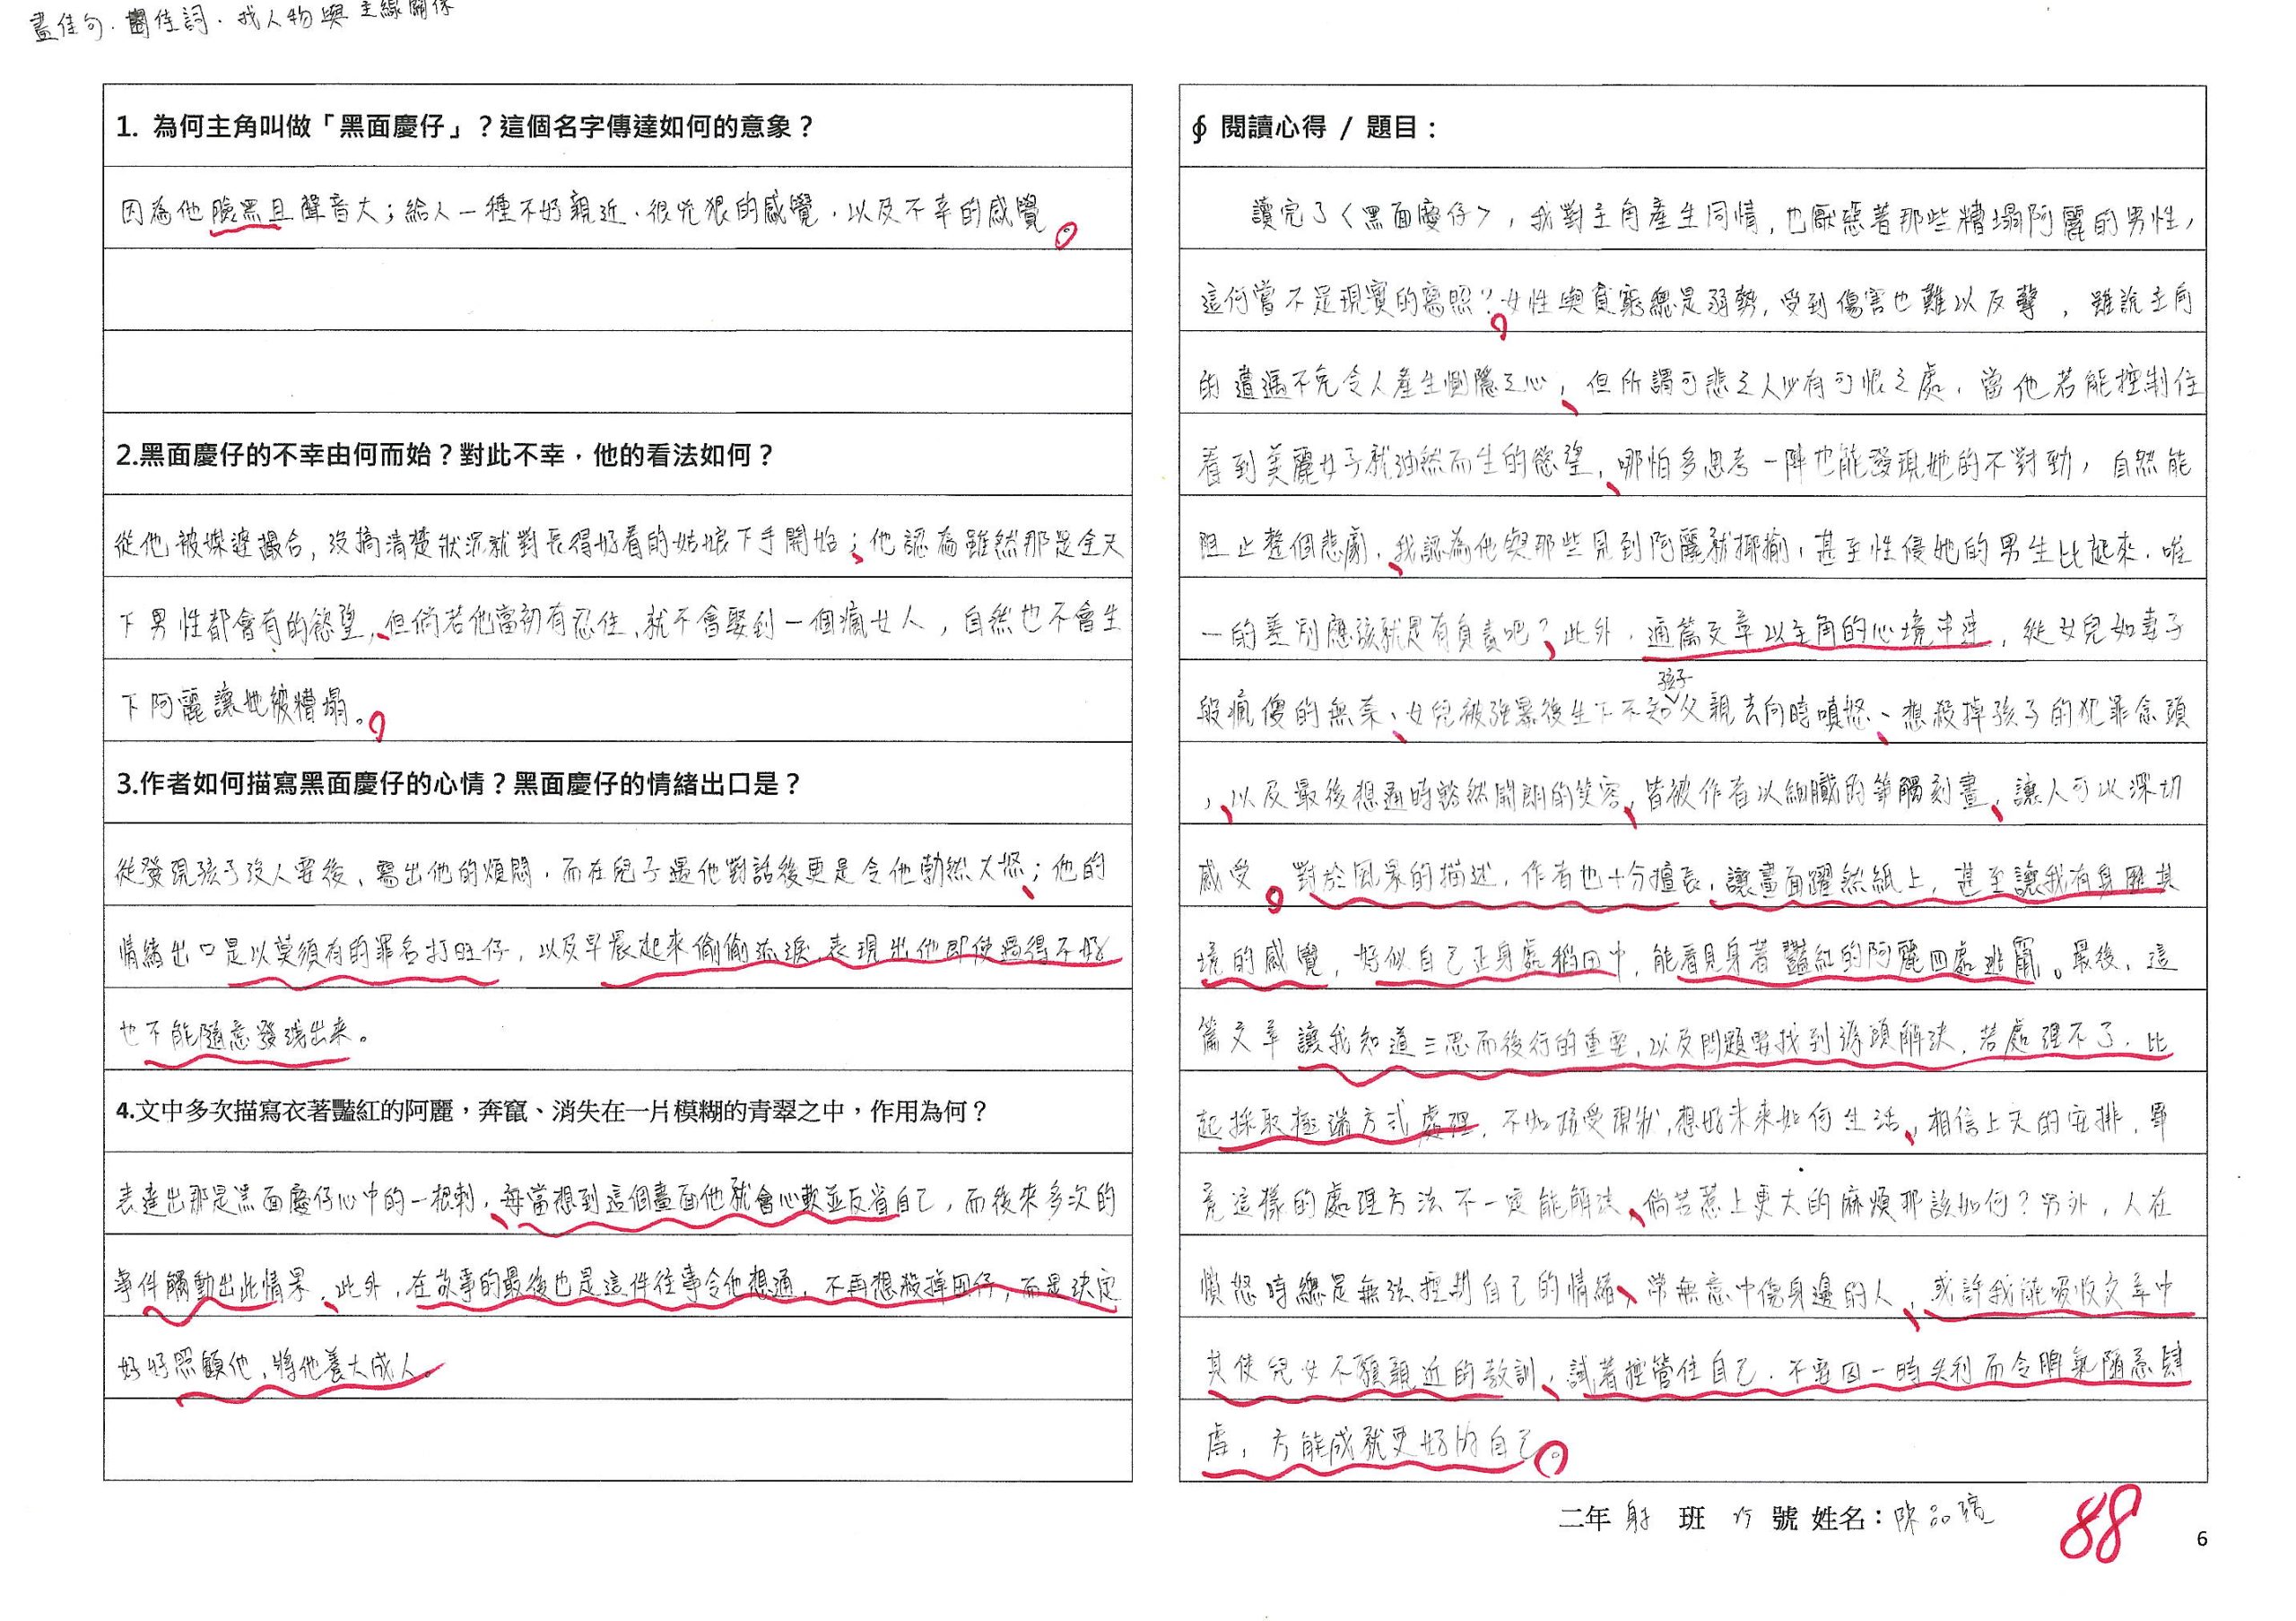 畫佳句.圈佳詞.找人物與主線關係
1. 為何主角叫做「黑面慶仔」？這個名字傳達如何的意象？
因為他臉黑且聲音大；給人一種不好親近、很兇狠的感覺，以及不幸的感覺。
2.黑面慶仔的不幸由何而始？對此不幸，他的看法如何？
從他被媒婆撮合，沒搞清楚狀況就對長得好看的姑娘下手開始；他認為雖然那是全天
下男性都會有的慾望，但倘若他當初有忍住，就不會娶到一個瘋女人，自然也不會生
下阿麗讓她被糟塌。
3.作者如何描寫黑面慶仔的心情？黑面慶仔的情緒出口是？
從發現孩子沒人要後、寫出他的煩悶，而在兒子與他對話後更是令他勃然大怒；他的
情緒出口是以莫須有的罪名打旺仔，以及早晨起來偷偷流淚，表現出他即使過得不好
也不能隨意發洩出來。
4.文中多次描寫衣著豔紅的阿麗，奔竄、消失在一片模糊的青翠之中，作用為何？
表達出那是黑面慶仔心中的一根刺，每當想到這個畫面他就會心軟並反省自己，而後來多次的
事件觸動出此情景，此外，在故事的最後也是這件往事令他想通，不再想殺掉囝仔，而是決定
好好照顧他，將他養大成人。
∮ 閱讀心得 / 題目：
讀完了〈黑面慶仔〉，我對主角產生同情，也厭惡著那些糟塌阿麗的男性，
這何嘗不是現實的寫照？女性與貧窮總是弱勢，受到傷害也難以反擊，雖說主角
的遭遇不免令人產生惻隱之心，但所謂可悲之人必有可恨之處，當他若能控制住
看到美麗女子就油然而生的慾望，哪怕多思考一陣也能發現她的不對勁，自然能
阻止整個悲劇，我認為他與那些見到阿麗就揶揄，甚至性侵她的男生比起來，唯
一的差別應該就是有負責吧？此外，通篇文章以主角的心境串連，從女兒如妻子
般瘋傻的無奈、女兒被強暴後生下不知孩子父親去向時嗔怒、想殺掉孩子的犯罪念頭
，以及最後想通時豁然開朗的笑容，皆被作者以細膩的筆觸刻畫，讓人可以深切
感受。對於風景的描述，作者也十分擅長，讓畫面躍然紙上，甚至讓我有身歷其
境的感覺，好似自己正身處稻田中，能看見身著豔紅的阿麗四處逃竄。最後，這
篇文章讓我知道三思而後行的重要，以及問題要找到源頭解決，若處理不了，比
起採取極端方式處理，不如接受現狀，想好未來如何生活，相信上天的安排，畢
竟這樣的處理方法不一定能解決，倘若惹上更大的麻煩那該如何？另外，人在
憤怒時總是無法控制自己的情緒，常無意中傷身邊的人，或許我能吸收文章中
其使兒女不願親近的教訓，試著控管住自己，不要因一時失利而令脾氣隨意肆
虐，方能成就更好的自己。
二年 射 班 15 號 姓名：陳品
88
6